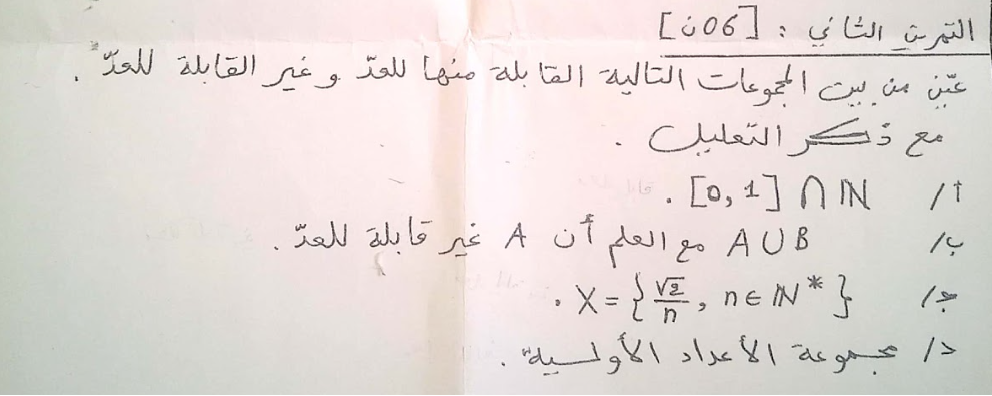 التمرين الثاني : [06ن]
عيّن من بين المجموعات التالية القابلة منها للعدّ و غير القابلة للعدّ .
مع ذكر التعليل .
أ/ [0, 1] ∩ ℕ .
ب/ A ∪ B مع العلم أن A غير قابلة للعدّ .
ج/ X = {√2/n , n ∈ ℕ*} .
د/ مجموعة الأعداد الأولية .